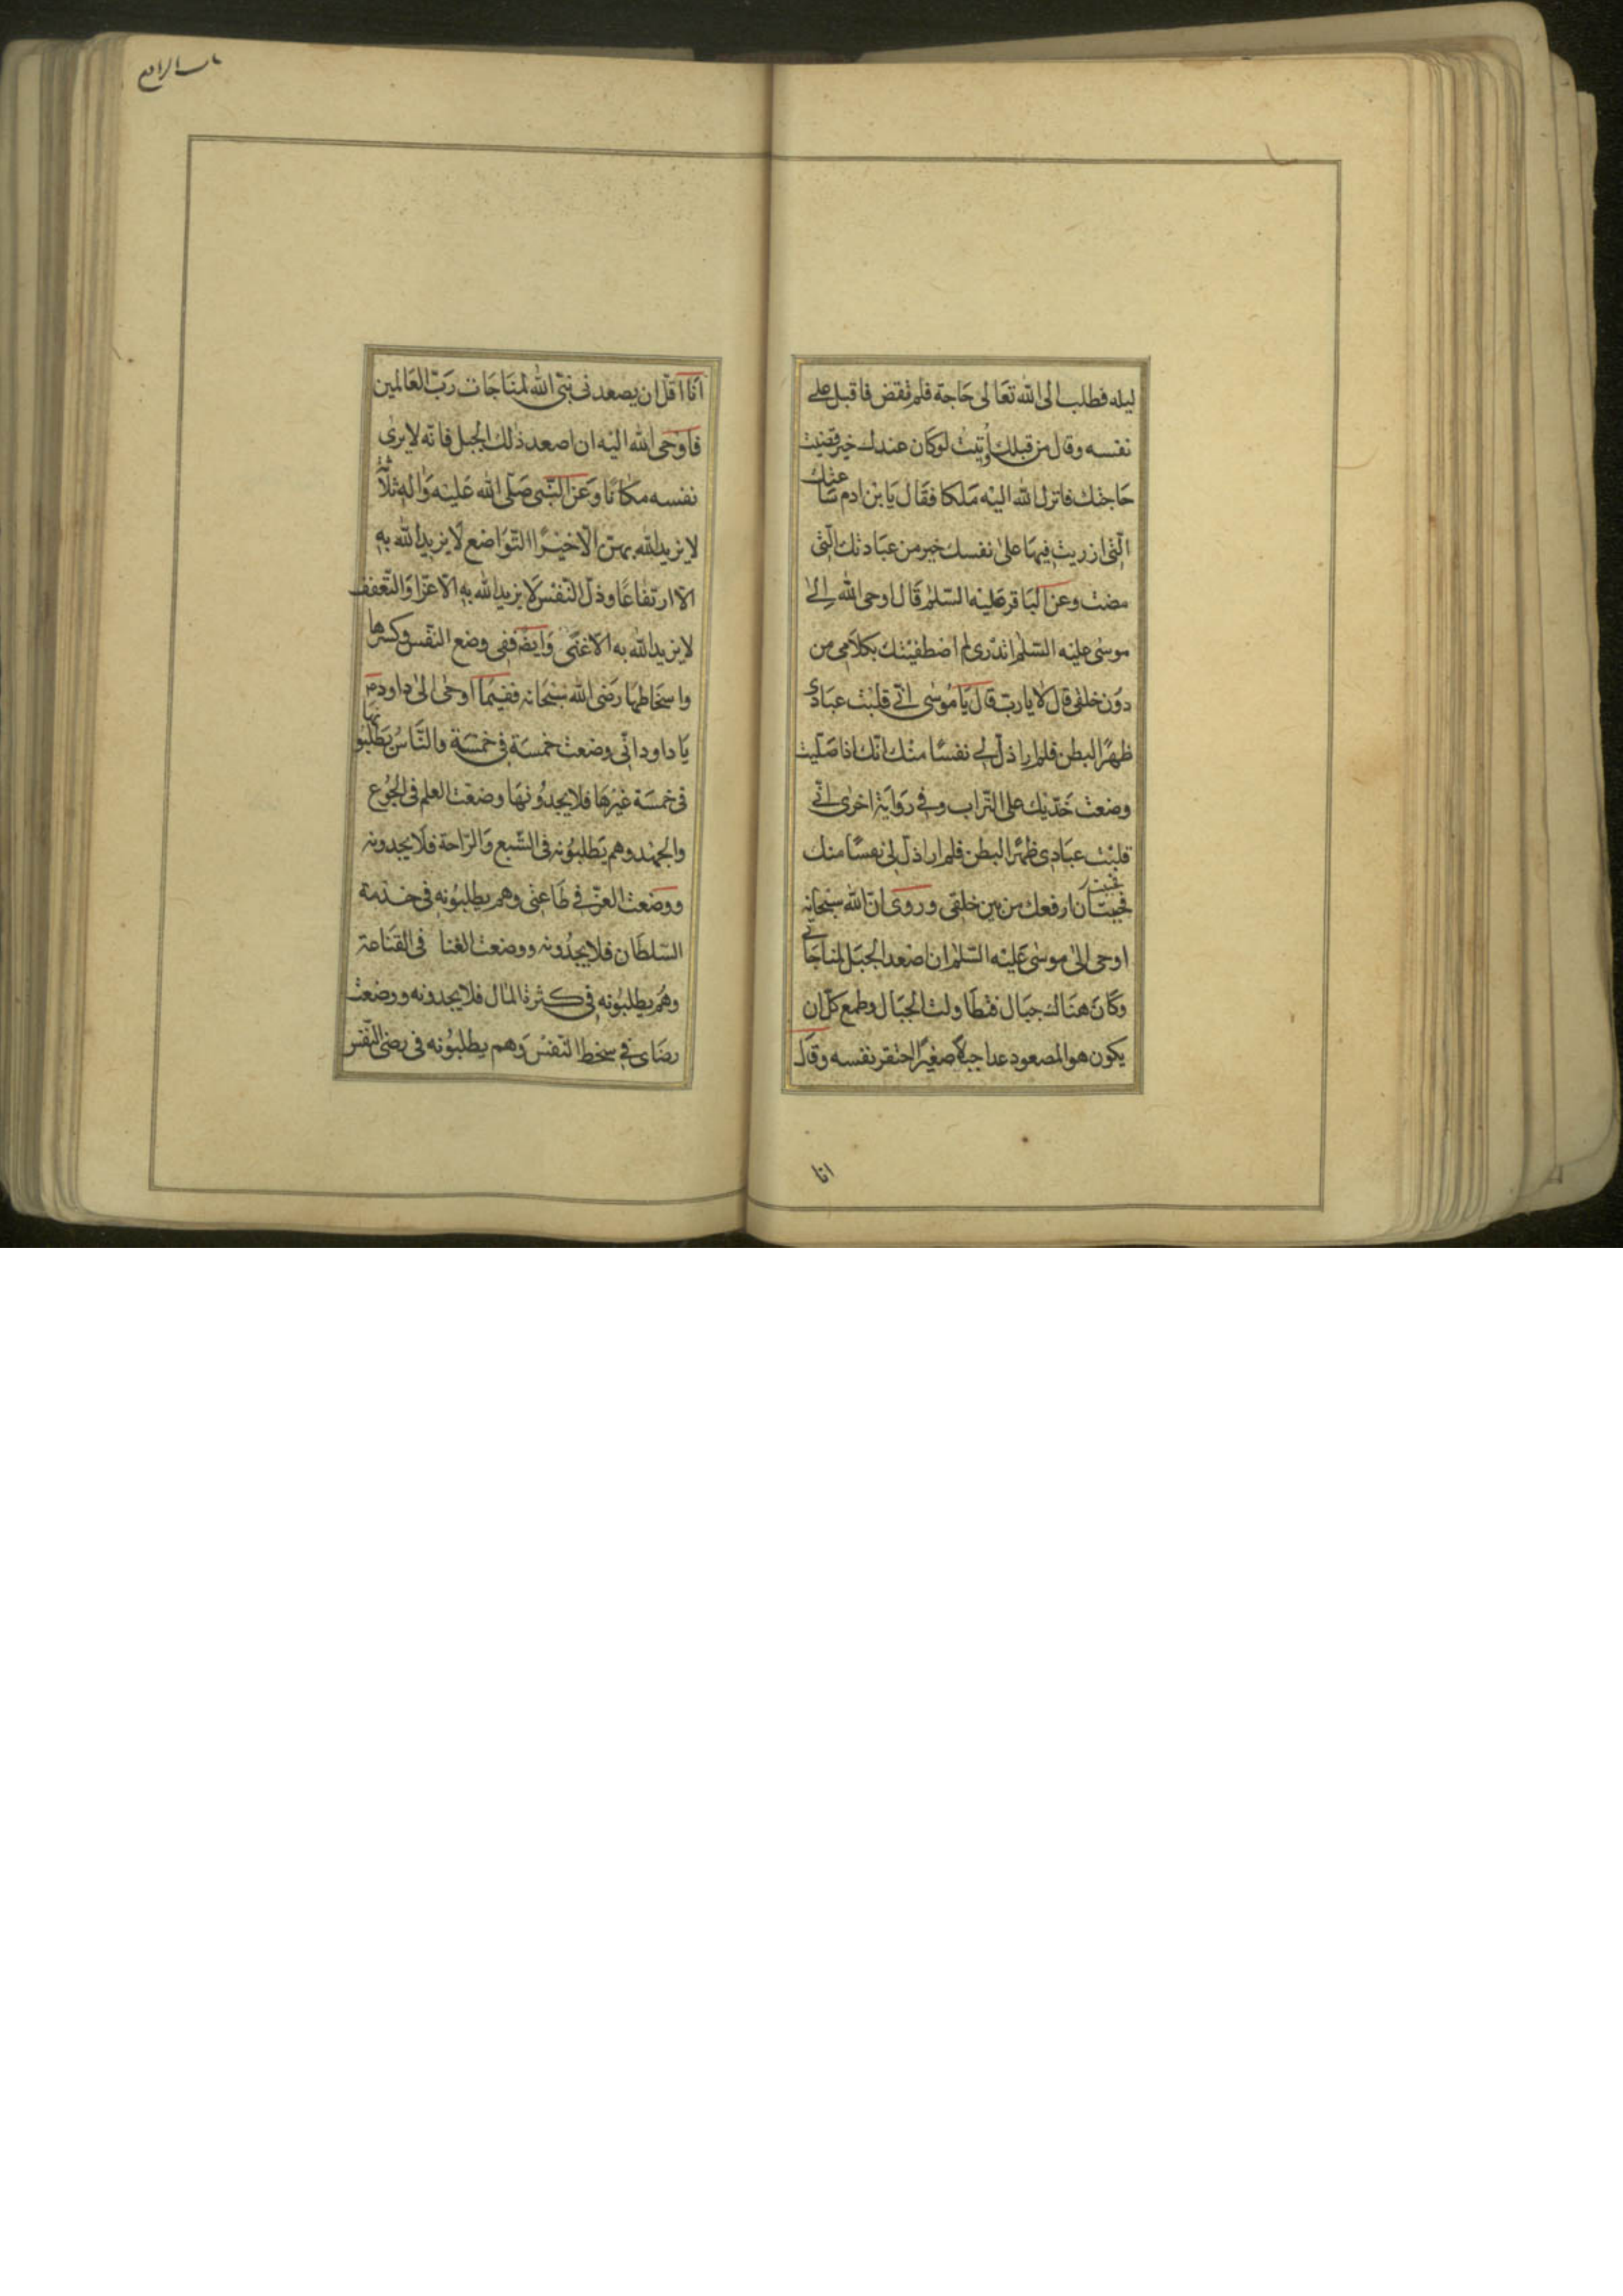 ليله فطلب الى الله تعَالى حَاجة فلم تقض فاقبل على
نفسه وقال من قبلك اُوتيت لوكان عندك خير قضيت
حَاجتك فانزل الله اليْه مَلكا فقَال يَا بْن ادم سَاعتك
الّتى ازريت فيهَا علىٰ نفسك خير من عبَادتك الّتى
مضت وعن البَاقر عَليْه السّلٰم قَال اوحى الله اِلىٰ
موسٰى عليْه السّلٰم اتدْرى لم اصْطفيْتك بكلَامى من
دوُن خلقى قال لَا يارب قال يَا مُوسٰى انّى قلبْت عبَادى
ظهرًا لبطن فلم ار اذلّ لى نفسًا منْك انّك اذا صَلّيت
وضعْت خَدّيْك على التّراب وفى رَوايَة اخرٰى انّى
قلبْت عبَادى ظهْرًا لبطن فلم ار اذلّ لى نفسًا منك
فاحببت ان ارفعك من بين خلقى وروى انّ الله سبْحَانه
اوحى الىٰ موسٰى عَليْه السّلٰم ان اصْعد الجبَل لمناجَاتى
وكَانَ هنَاك جبَال فتطَاولت الجبَال وطمع كلّ ان
يكون هو المصعود عدا جبلًا صغيرًا احتقر نفسه وقَال
انا
باب الرابع
اَنَا اقلّ ان يصعد نى نبىّ الله لمنَاجَات رَبّ العَالمين
فاَوحى الله اليْه ان اصعد ذٰلك الجبل فانّه لايرىٰ
نفسه مكَانًا وَعَن النّبى صَلّى الله عَليْه وَاٰلهِ ثلٰثٌ
لا يزيد الله بهنّ الّا خيْرًا التّوَاضع لَا يزيد الله بهِ
الّا ارتفاعًا وذلّ النّفْس لَا يزيد الله به الّا عزّا وَالتّعفف
لا يزيد الله به الّا غنًى وَايضًا ففى وضع النّفس وكسرها
واسخَاطهَا رَضى الله سبْحَانه ففيمَا اوحٰى الىٰ داود م
يَا داود انّى وضعت خمسَة فى خمْسَة والنّاسُ يَطلبُونهَا
فى خمسَة غيْرهَا فلا يجدُونهَا وضعْت العلم فى الجُوع
والجهْد وهم يَطلبُونه فى الشّبع وَالرّاحة فلَا يجدونه
ووضعْت العزّ فى طَاعتى وهم يطلبُونه فى خدْمة
السّلطَان فلا يجدُونه ووضعت الغنا فى القَناعة
وهُم يطلبُونه فى كثرة المَال فلا يجدونه ووضعت
رضَاى فى سخط النّفسْ وَهم يطلبُونه فى رضى النّفس